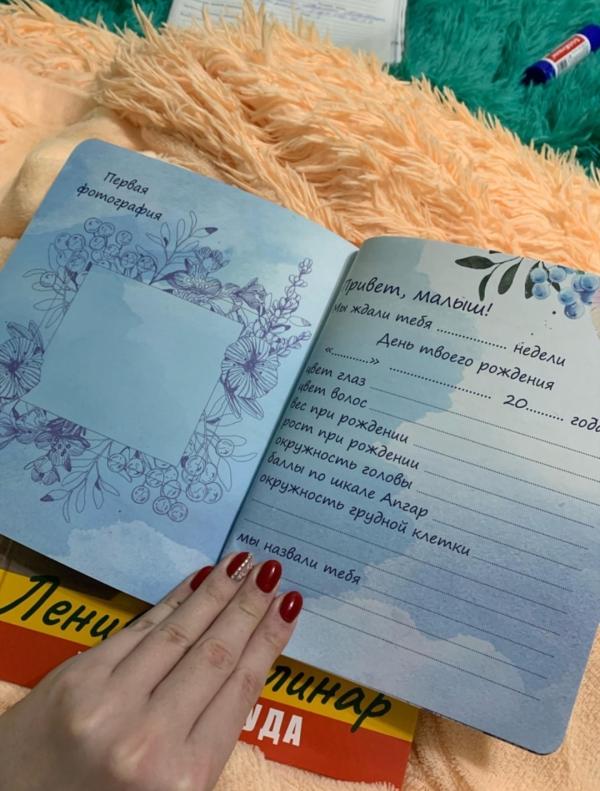 Первая
фотография
Привет, малыш!
мы ждали тебя .................. недели
День твоего рождения
«..........» .......................... 20......... года
цвет глаз
цвет волос
вес при рождении
рост при рождении
окружность головы
баллы по шкале Апгар
окружность грудной клетки
мы назвали тебя
Лени
линар
УДА